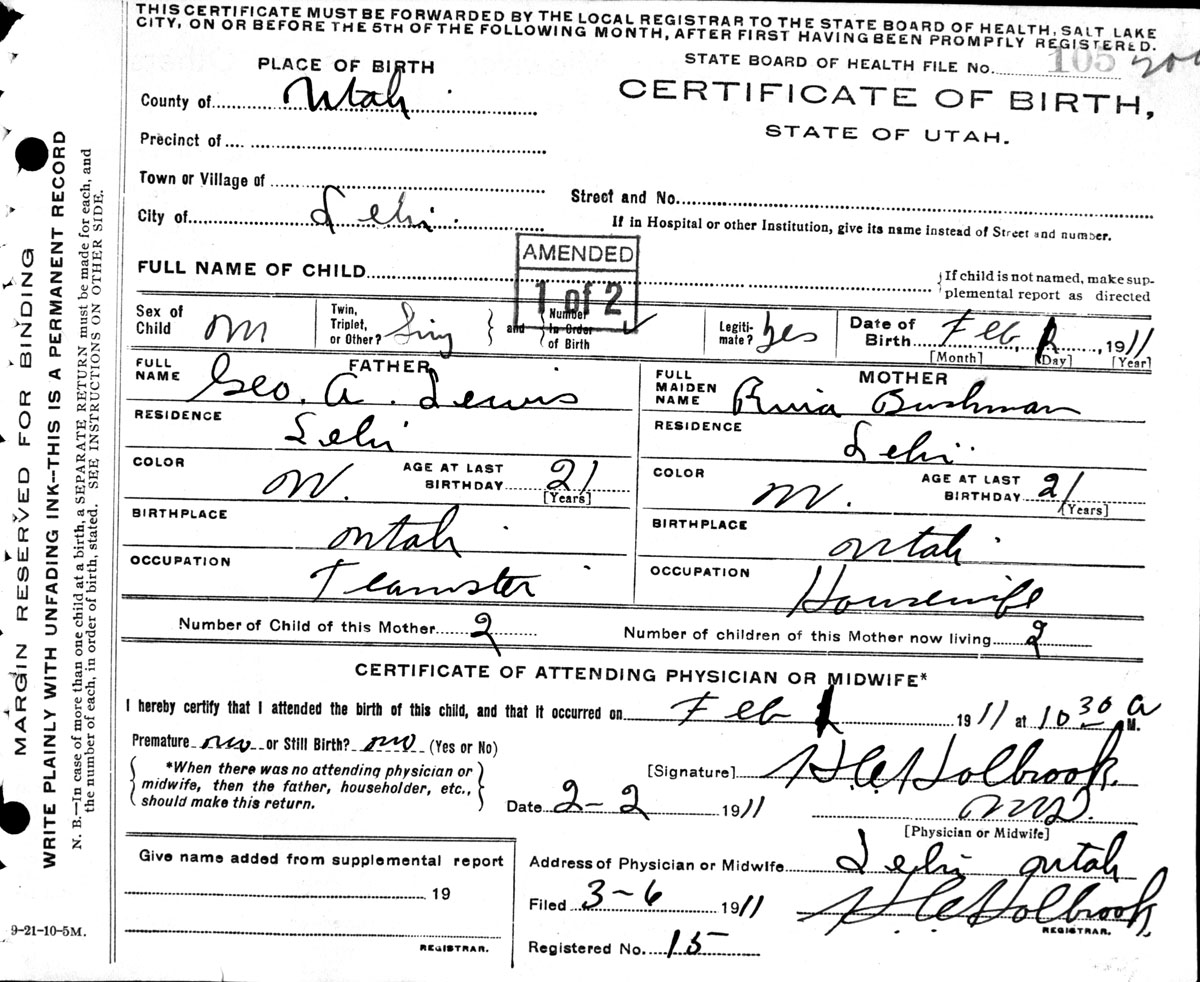 THIS CERTIFICATE MUST BE FORWARDED BY THE LOCAL REGISTRAR TO THE STATE BOARD OF HEALTH, SALT LAKE
CITY, ON OR BEFORE THE 5TH OF THE FOLLOWING MONTH, AFTER FIRST HAVING BEEN PROMPTLY REGISTERED.
STATE BOARD OF HEALTH FILE No. 105
PLACE OF BIRTH
CERTIFICATE OF BIRTH,
STATE OF UTAH.
County of Utah
Precinct of
Town or Village of
Street and No.
City of Lehi
If in Hospital or other Institution, give its name instead of Street and number.
AMENDED
1 of 2
FULL NAME OF CHILD
If child is not named, make sup-
plemental report as directed
Sex of Child M
Twin, Triplet, or Other? Sing
and Number In Order of Birth ✓
Legiti-mate? Yes
Date of Birth Feb, 1911
[Month] [Day] [Year]
FATHER
FULL NAME Geo. A. Lewis
MOTHER
FULL MAIDEN NAME Bushman
RESIDENCE Lehi
RESIDENCE Lehi
COLOR W. AGE AT LAST BIRTHDAY 21 [Years]
COLOR W. AGE AT LAST BIRTHDAY 21 [Years]
BIRTHPLACE Utah
BIRTHPLACE Utah
OCCUPATION Teamster
OCCUPATION Housewife
Number of Child of this Mother 2
Number of children of this Mother now living 2
CERTIFICATE OF ATTENDING PHYSICIAN OR MIDWIFE*
I hereby certify that I attended the birth of this child, and that it occurred on Feb 1911 at 10 30 a M.
Premature no or Still Birth? no (Yes or No)
*When there was no attending physician or
midwife, then the father, householder, etc.,
should make this return.
[Signature] H.C. Holbrook
M.D.
Date 2-2 1911
[Physician or Midwife]
Give name added from supplemental report
19
REGISTRAR.
Address of Physician or Midwife Lehi Utah
Filed 3-6 1911 H.C. Holbrook
REGISTRAR.
Registered No. 15
9-21-10-5M.
MARGIN RESERVED FOR BINDING
WRITE PLAINLY WITH UNFADING INK--THIS IS A PERMANENT RECORD
N. B.—In case of more than one child at a birth, a SEPARATE RETURN must be made for each, and
the number of each, in order of birth, stated. SEE INSTRUCTIONS ON OTHER SIDE.